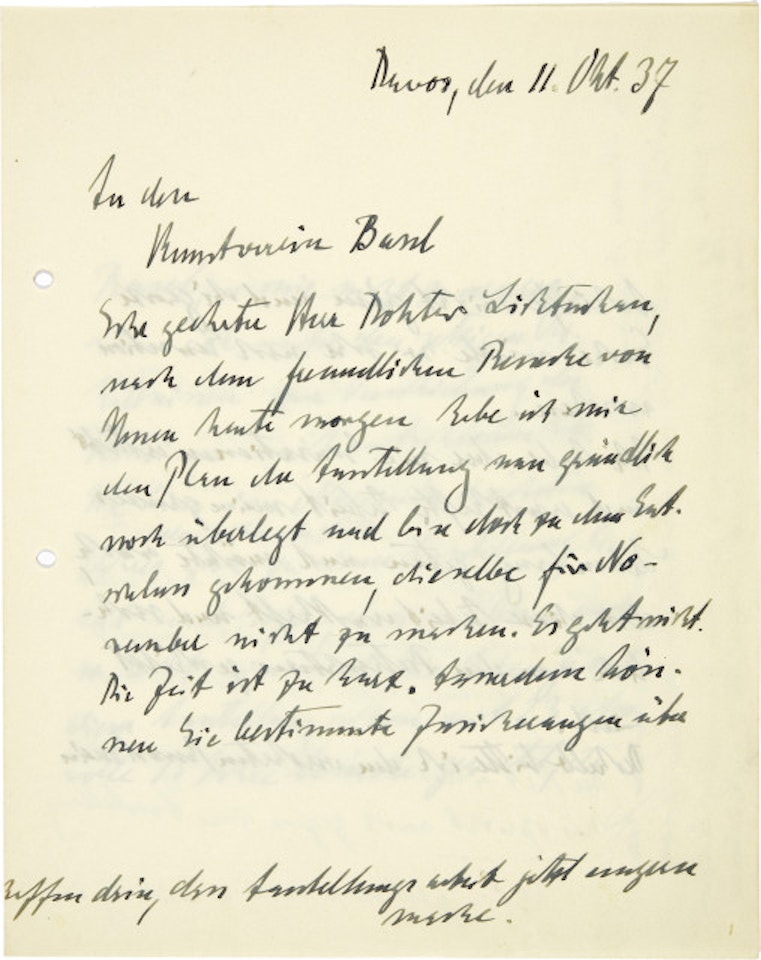 Davos, den 11. Okt. 37
An den
Kunstverein Basel
Sehr geehrter Herr Doktor Lichtenhan,
nach dem freundlichen Besuche von
Ihnen heute morgen habe ich mir
den Plan der Ausstellung nun gründlich
noch überlegt und bin doch zu dem Ent-
schluss gekommen, dieselbe für No-
vember nicht zu machen. Es geht nicht.
Die Zeit ist zu kurz. Ausserdem kön-
nen Sie bestimmte Zusicherungen über
drin, dass Ausstellungsarbeit jetzt ungern
mache.